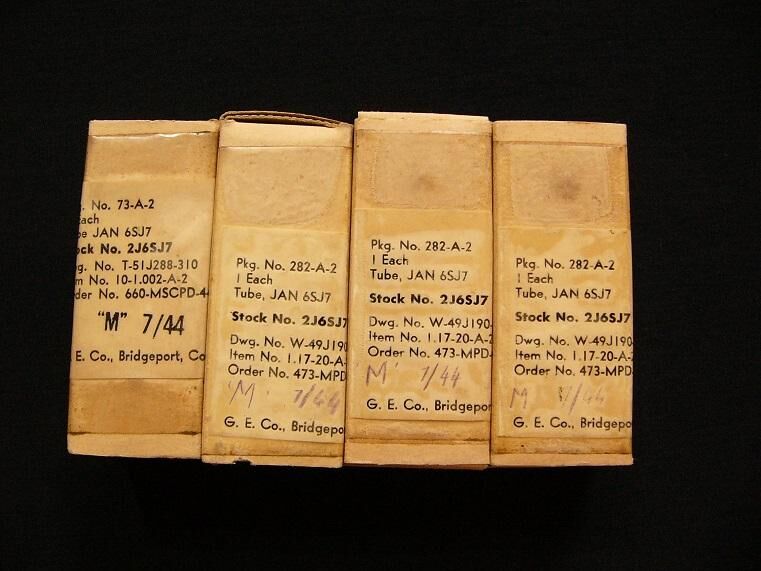 . No. 73-A-2
Each
e JAN 6SJ7
ock No. 2J6SJ7
g. No. T-51J288-310
m No. 10-1.002-A-2
der No. 660-MSCPD-4
"M" 7/44
E. Co., Bridgeport, Co
Pkg. No. 282-A-2
1 Each
Tube, JAN 6SJ7
Stock No. 2J6SJ7
Dwg. No. W-49J190
Item No. 1.17-20-A-
Order No. 473-MPD
'M' 7/44
G. E. Co., Bridgepo
Pkg. No. 282-A-2
1 Each
Tube, JAN 6SJ7
Stock No. 2J6SJ7
Dwg. No. W-49J190-
Item No. 1.17-20-A-2
Order No. 473-MPD-
'M' 7/44
G. E. Co., Bridgepor
Pkg. No. 282-A-2
1 Each
Tube, JAN 6SJ7
Stock No. 2J6SJ7
Dwg. No. W-49J190
Item No. 1.17-20-A-
Order No. 473-MPD
M 7/44
G. E. Co., Bridgepo